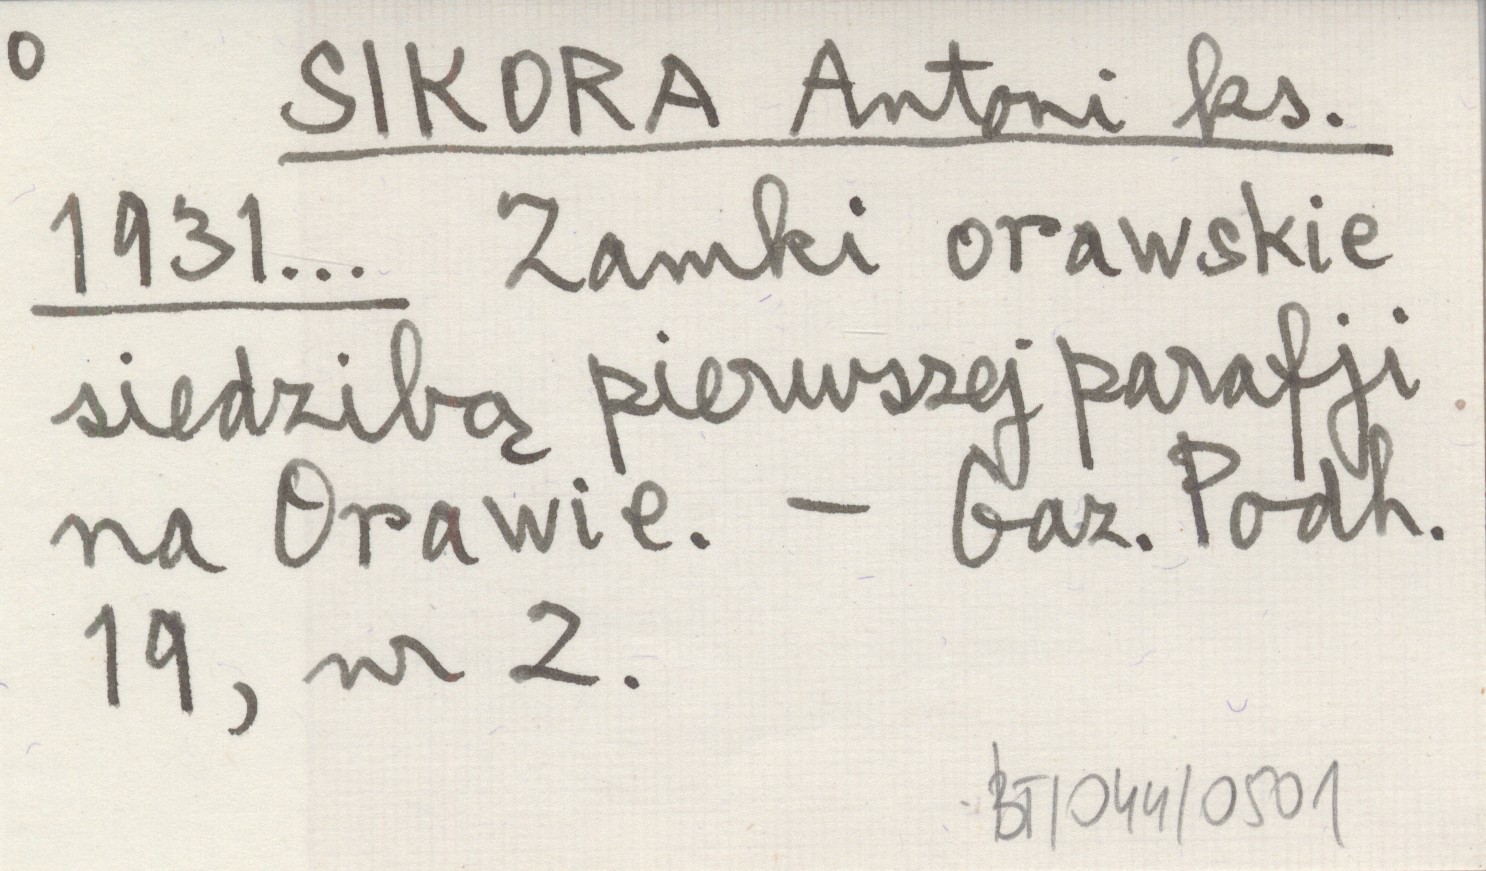 o
SIKORA Antoni ks.
1931... Zamki orawskie
siedzibą pierwszej parafji
na Orawie. – Gaz. Podh.
19, nr 2.
BT/044/0501